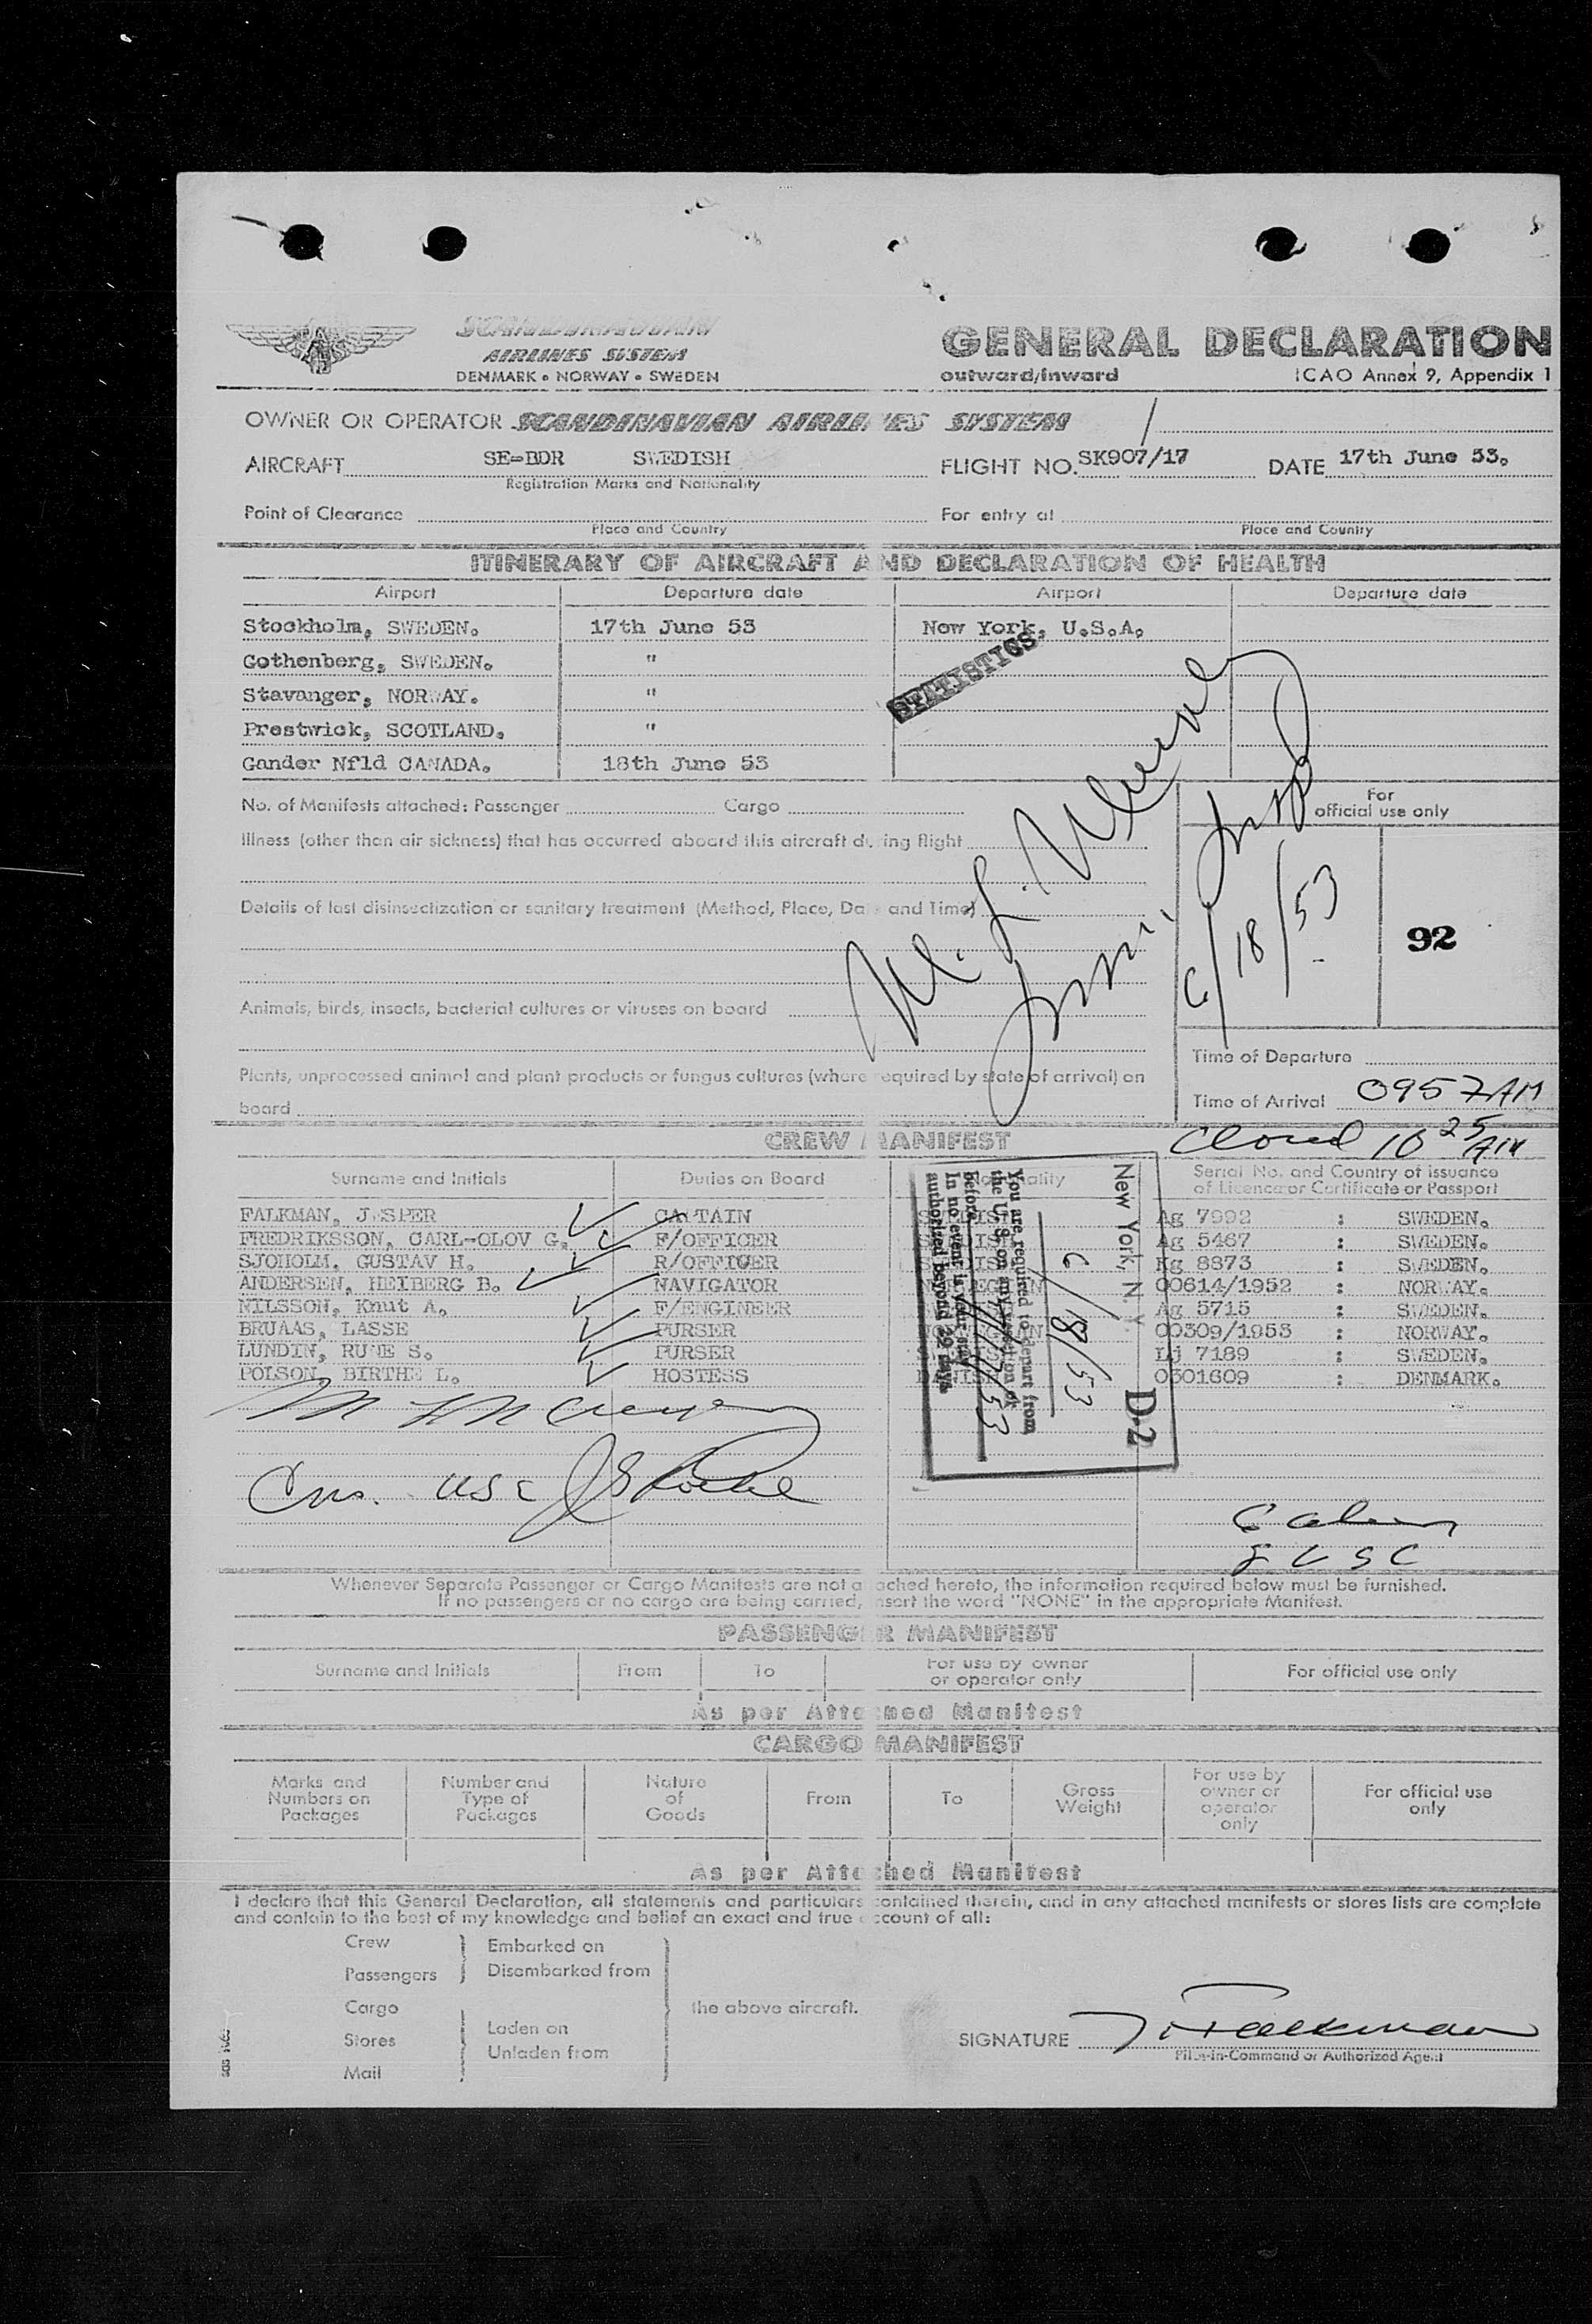 SCANDINAVIAN
AIRLINES SYSTEM
DENMARK • NORWAY • SWEDEN
GENERAL DECLARATION
outward/inward
ICAO Annex 9, Appendix 1
OWNER OR OPERATOR SCANDINAVIAN AIRLINES SYSTEM
AIRCRAFT SE-BDR SWEDISH
FLIGHT NO. SK907/17 DATE 17th June 53.
Registration Marks and Nationality
Point of Clearance
For entry at
Place and Country
Place and Country
ITINERARY OF AIRCRAFT AND DECLARATION OF HEALTH
Airport Departure date Airport Departure date
Stockholm, SWEDEN. 17th June 53 New York, U.S.A.
Gothenberg, SWEDEN. "
Stavanger, NORWAY. "
Prestwick, SCOTLAND. "
Gander Nfld CANADA. 18th June 53
STATISTICS
No. of Manifests attached: Passenger Cargo
For
official use only
Illness (other than air sickness) that has occurred aboard this aircraft during flight
Details of last disinsectization or sanitary treatment (Method, Place, Date and Time)
M. L.
6/18/53
92
Animals, birds, insects, bacterial cultures or viruses on board
Plants, unprocessed animal and plant products or fungus cultures (where required by state of arrival) on
board
Time of Departure
Time of Arrival 0957AM
Closed 10 25 AM
CREW MANIFEST
Surname and Initials Duties on Board Nationality Serial No. and Country of issuance
of Licence or Certificate or Passport
FALKMAN, JESPER CAPTAIN SWEDISH Ag 7992 : SWEDEN.
FREDRIKSSON, CARL-OLOV G. F/OFFICER SWEDISH Ag 5467 : SWEDEN.
SJOHOLM, GUSTAV H. R/OFFICER SWEDISH Kg 8873 : SWEDEN.
ANDERSEN, HEIBERG B. NAVIGATOR NORWEGIAN 00614/1952 : NORWAY.
NILSSON, Knut A. F/ENGINEER SWEDISH Ag 5715 : SWEDEN.
BRUAAS, LASSE PURSER NORWEGIAN 00309/1953 : NORWAY.
LUNDIN, RUNE S. PURSER SWEDISH Lj 7189 : SWEDEN.
POLSON, BIRTHE L. HOSTESS DANISH 0301609 : DENMARK.
New York, N.Y. D-2
6/18/53
You are required to depart from
the U.S. on
before 7/17/53
In no event is your stay
authorized beyond 29 days.
Whenever Separate Passenger or Cargo Manifests are not attached hereto, the information required below must be furnished.
If no passengers or no cargo are being carried, insert the word "NONE" in the appropriate Manifest.
PASSENGER MANIFEST
Surname and Initials From To For use by owner
or operator only For official use only
As per Attached Manifest
CARGO MANIFEST
Marks and
Numbers on
Packages
Number and
Type of
Packages
Nature
of
Goods
From
To
Gross
Weight
For use by
owner or
operator
only
For official use
only
As per Attached Manifest
I declare that this General Declaration, all statements and particulars contained therein, and in any attached manifests or stores lists are complete
and contain to the best of my knowledge and belief an exact and true account of all:
Crew
Passengers
Embarked on
Disembarked from
Cargo
Stores
Mail
Laden on
Unladen from
the above aircraft.
SIGNATURE J Falkman
Pilot-in-Command or Authorized Agent